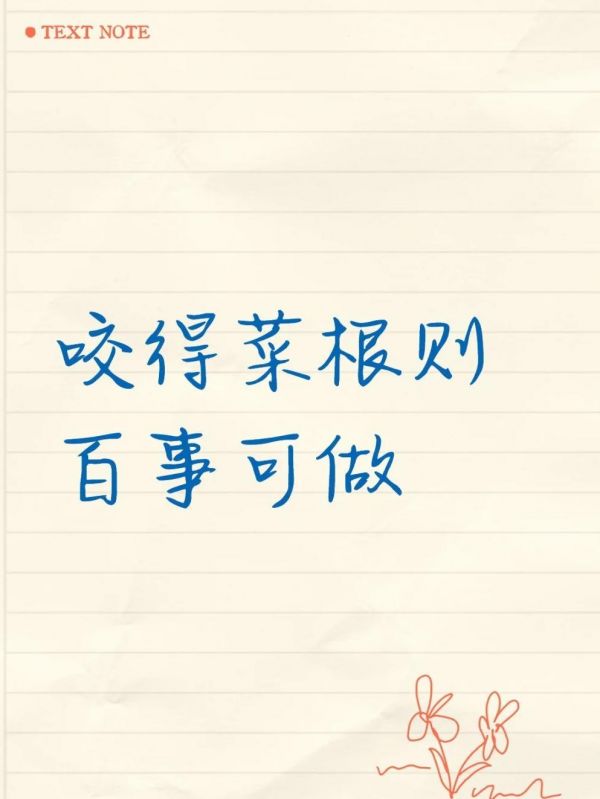 TEXT NOTE
咬得菜根则
百事可做